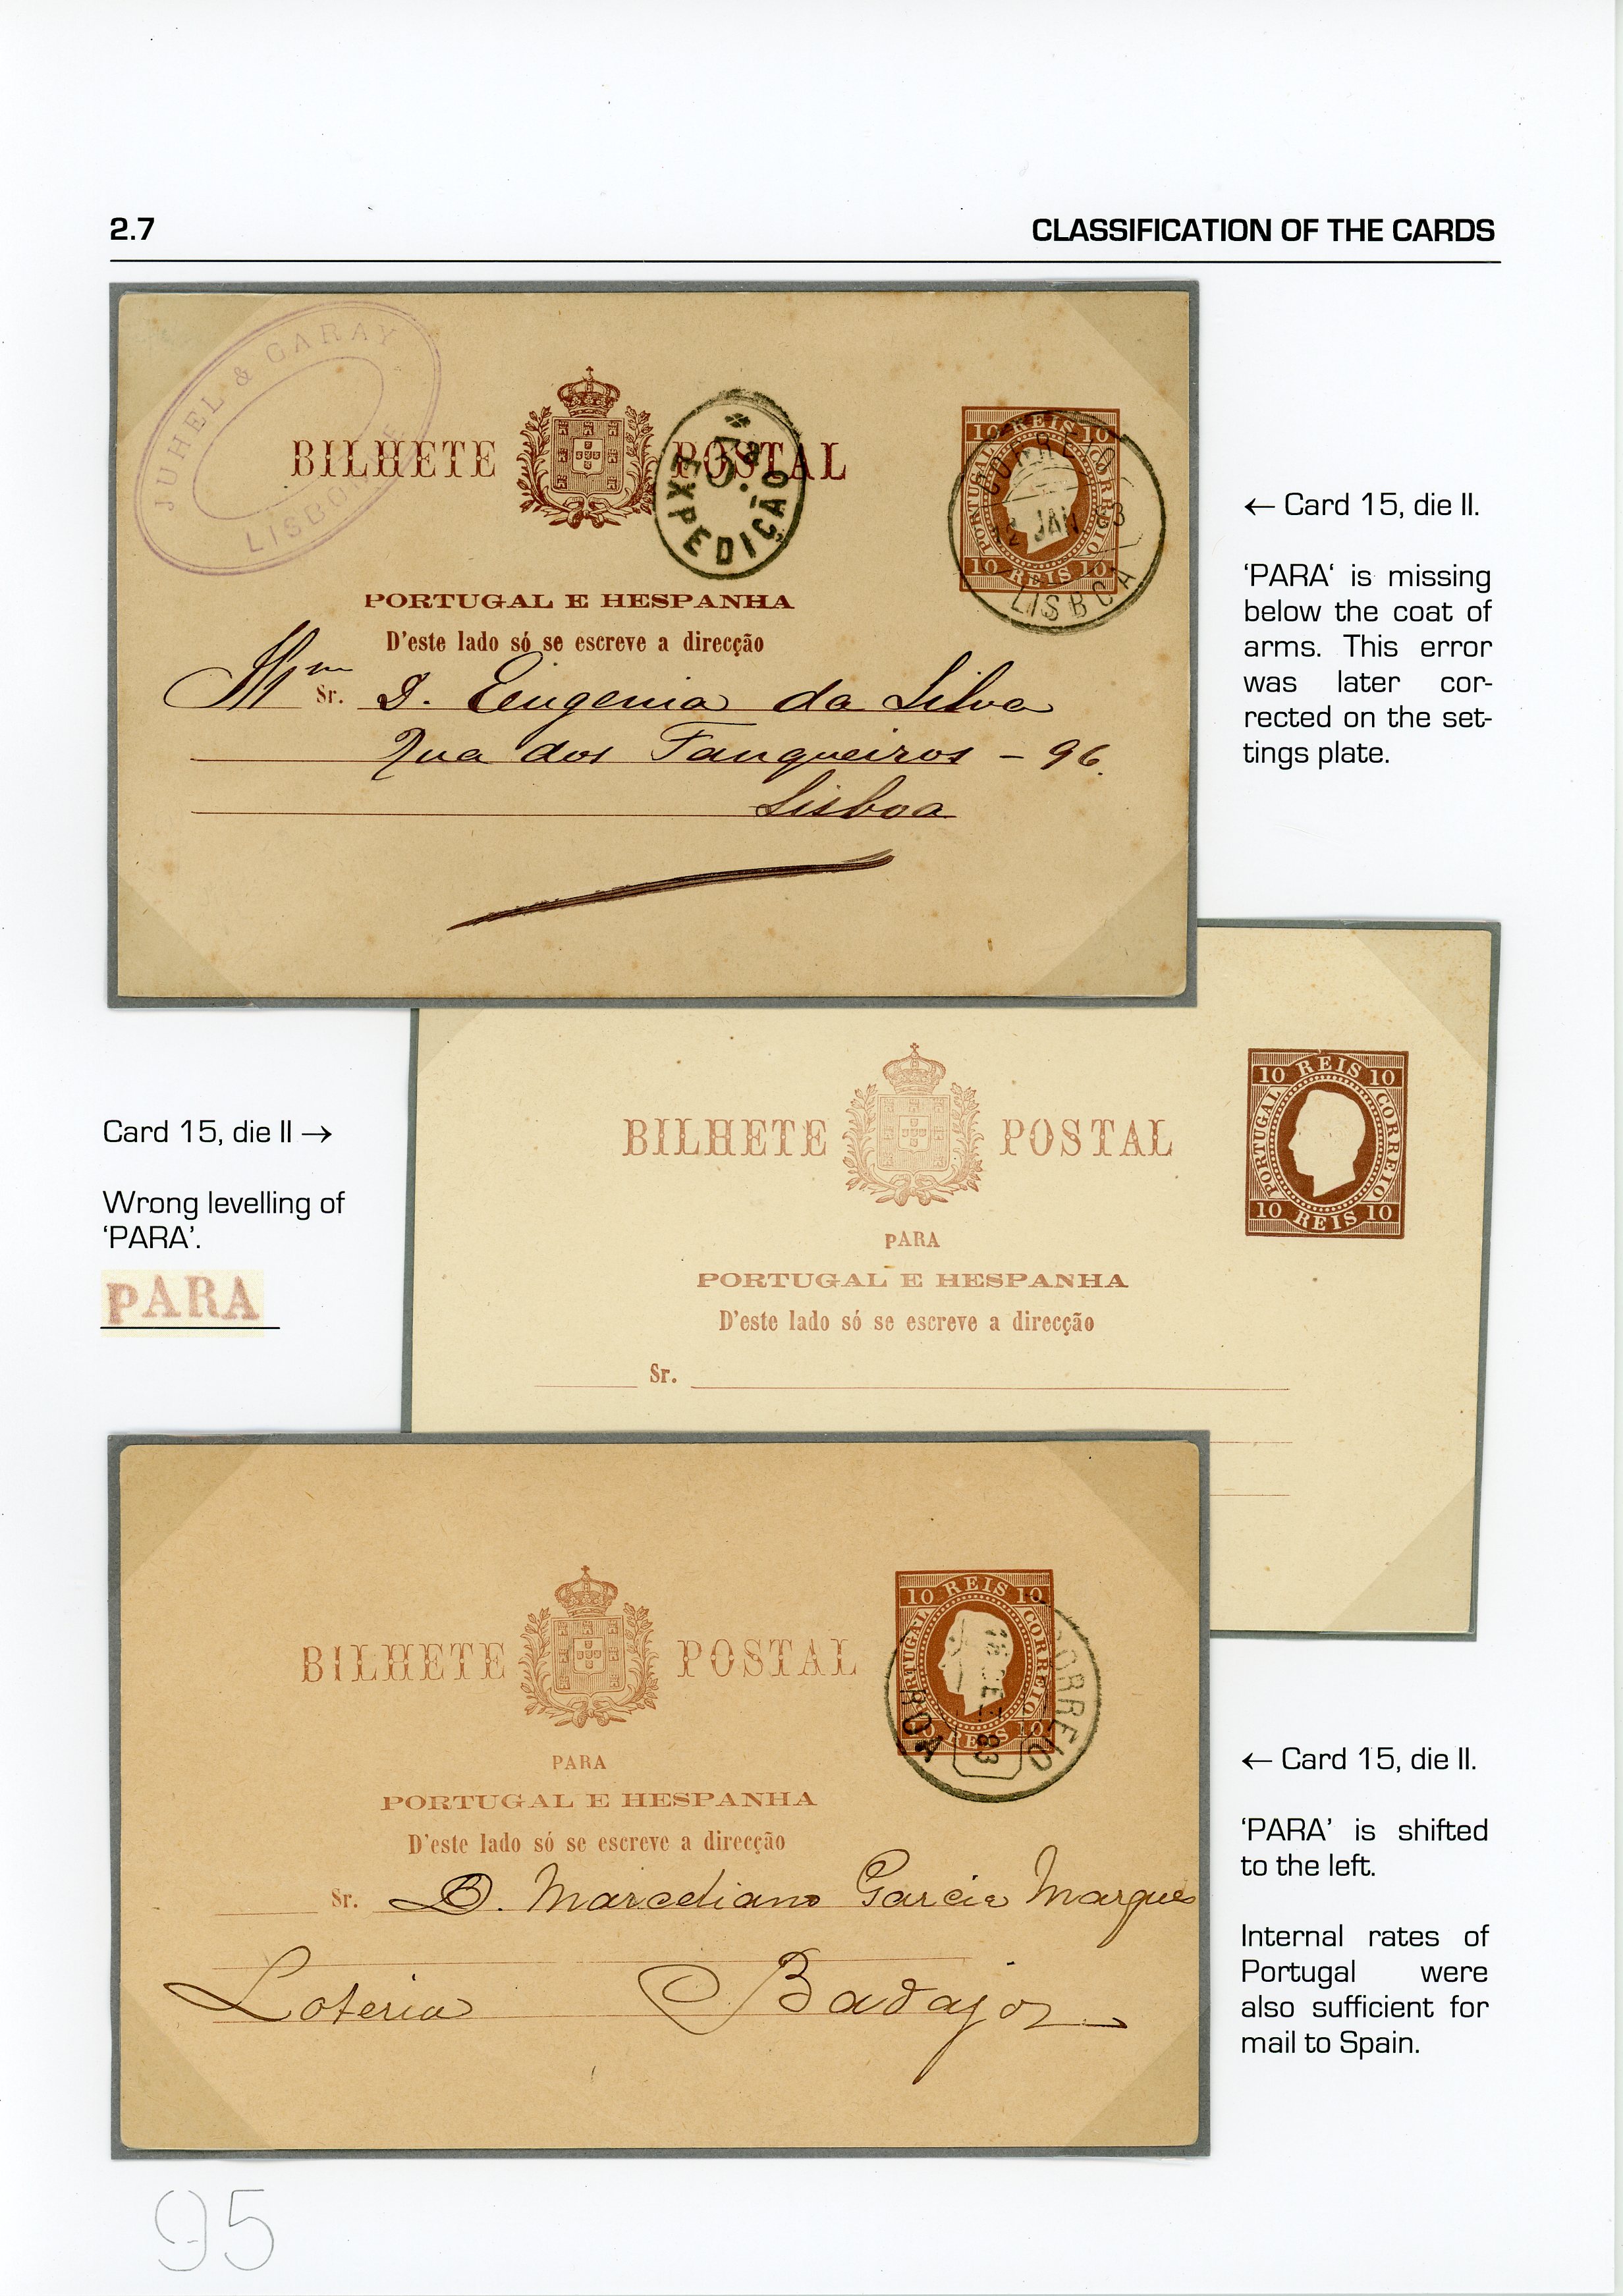 2.7 CLASSIFICATION OF THE CARDS
JUHEL & GARAY
LISBONNE
BILHETE POSTAL
EXPEDIÇÃO
10 REIS 10
PORTUGAL CORREIO
10 REIS 10
CORREIO
JAN
LISBOA
PORTUGAL E HESPANHA
D'este lado só se escreve a direcção
Sr. D. Eugenia da Silva
Rua dos Fanqueiros - 96.
Lisboa
← Card 15, die II.
'PARA' is missing
below the coat of
arms. This error
was later cor-
rected on the set-
tings plate.
Card 15, die II →
Wrong levelling of
'PARA'.
PARA
BILHETE POSTAL
10 REIS 10
PORTUGAL CORREIO
10 REIS 10
PARA
PORTUGAL E HESPANHA
D'este lado só se escreve a direcção
Sr.
BILHETE POSTAL
10 REIS 10
PORTUGAL CORREIO
10 REIS 10
CORREIO
83
PARA
PORTUGAL E HESPANHA
D'este lado só se escreve a direcção
Sr. D. Marceliano Garcia Marques
Loteria Badajoz
← Card 15, die II.
'PARA' is shifted
to the left.
Internal rates of
Portugal were
also sufficient for
mail to Spain.
95